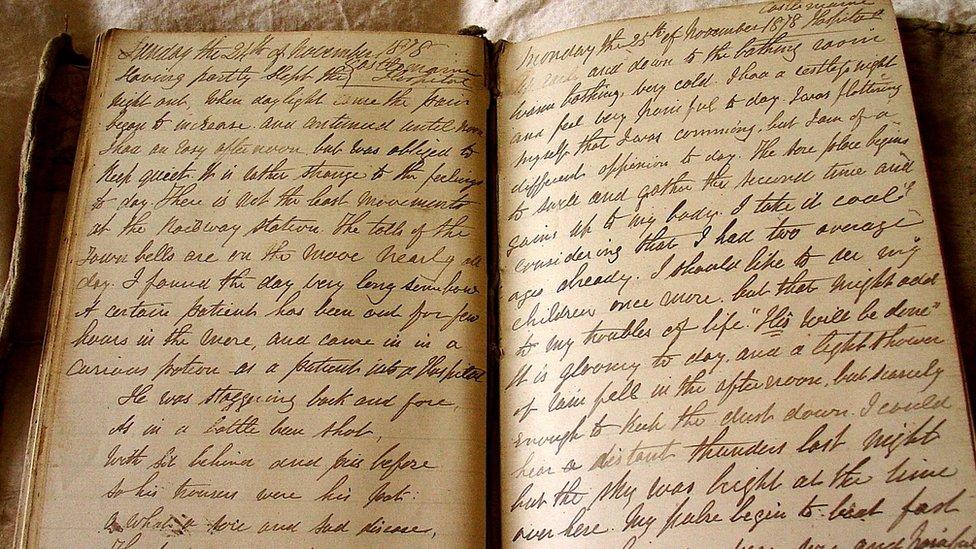 Sunday the 24th of November, 1878
Castlemaine Hospital
Having partly slept the
night out, when daylight came the pain
began to increase, and continued until noon
I had an easy afternoon, but was obliged to
keep quiet. It is rather strange to the feelings
to day. There is not the least movements
at the Railway station. The tolls of the
Town bells are on the move nearly all
day. I found the day very long somehow
A certain patient has been out for few
hours in the more, and came in in a
Curious potion as a patient into a Hospital
He was staggering back and fore,
As in a battle been shot,
With s't behind and piss before
So his trousers were his pot:
O what a sore and sad disease,
Castlemaine
Monday the 25th of November 1878 Hospital
and down to the bathing room
warm bathing. very cold. I had a restless night
and feel very painful to day. I was flattering
myself that I was comming, but I am of a
different oppinion to day. The sore place begins
to swell and gather the second time and
gains up to my body. I take it cool"
considering that I had two average
ages already. I should like to see my
children once more. but that might add
to my troubles of life." "His will be done"
It is gloomy to day, and a light shown
of rain fell in the afternoon, but scarcely
enough to keek the dust down. I could
hear a distant thunders last night
but the sky was bright at the time
over here. My pulse begin to beat fast
and painful